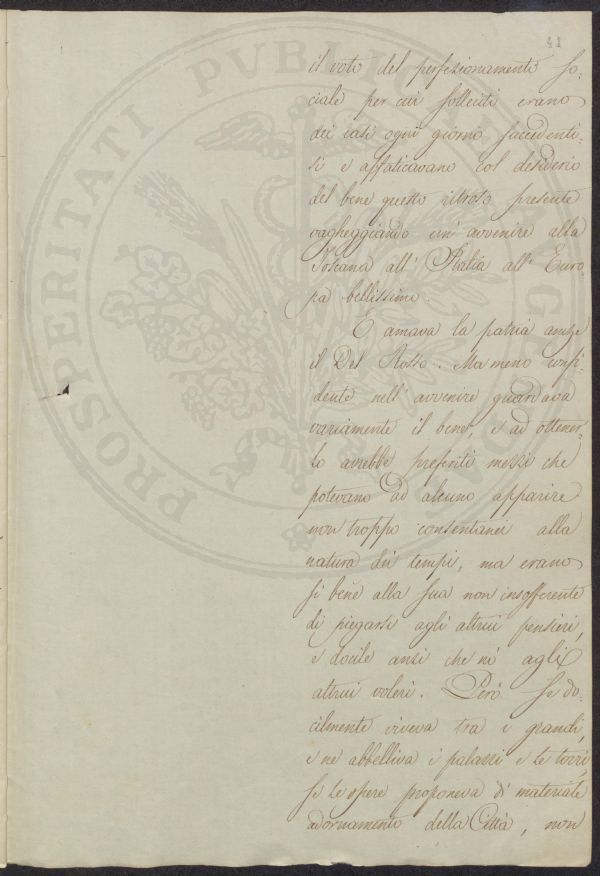 41
il voto del perfezionamento so-
ciale per cui solleciti erano
dei casi ogni giorno succedenti-
si e affaticavano col desiderio
del bene questo ritroso presente
vagheggiando un' avvenire alla
Toscana all' Italia all' Euro
pa bellissimo.
E amava la patria anche
il Del Rosso. Ma meno confi-
dente nell' avvenire guardava
variamente il bene, e ad ottener-
lo avrebbe preferiti mezzi che
potevano ad alcuno apparire
non troppo consentanei alla
natura dei tempi, ma erano
si bene alla sua non insofferente
di piegarsi agli altrui pensieri,
e docile anzi che nò agli
altrui voleri. Però se do-
cilmente viveva tra i grandi,
e ne abbelliva i palazzi e le torri,
se le opere proponeva di materiale
adornamento della Città, non
PROSPERITATI PUBLICAE AUGENDAE